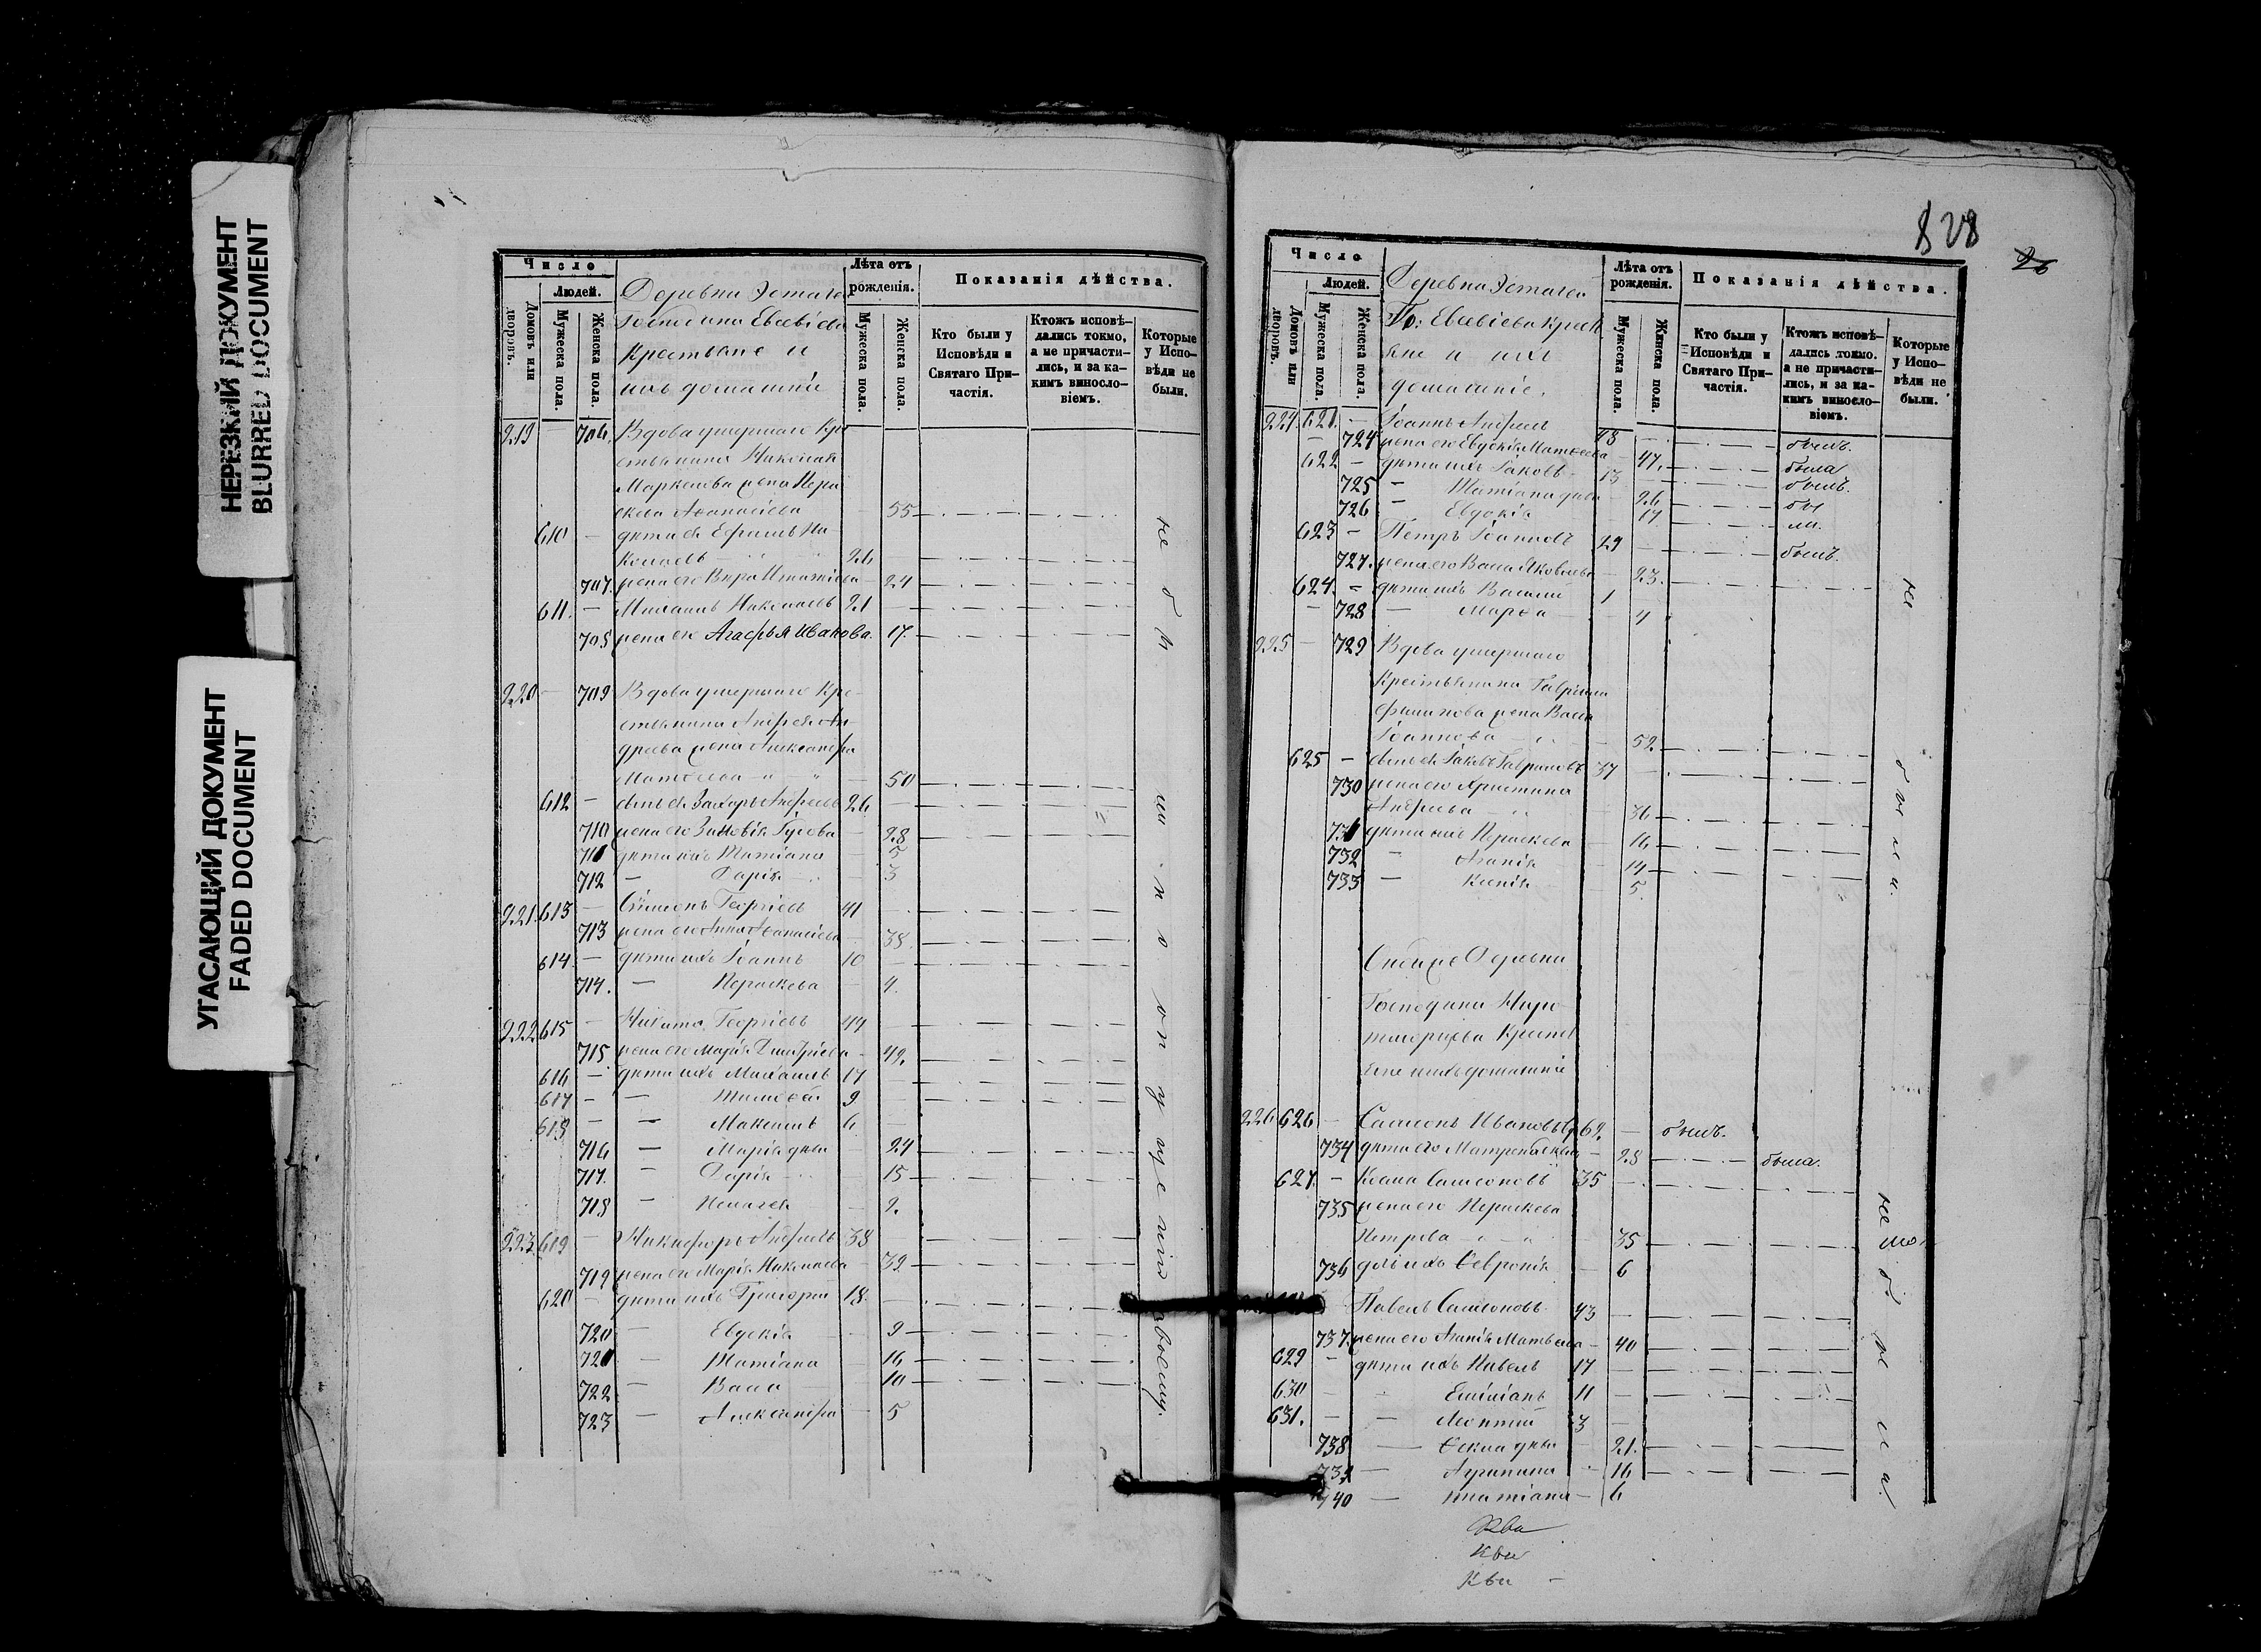 НЕРЕЗКИЙ ДОКУМЕНТ
BLURRED DOCUMENT
УГАСАЮЩИЙ ДОКУМЕНТ
FADED DOCUMENT
Число
Людей.
Домовъ или дворовъ.
Мужеска пола.
Женска пола.
Деревни
Господина Евсевiева
Крестьяне и
ихъ домашнiе
Лѣта отъ рожденiя.
Мужеска пола.
Женска пола.
Показанiя дѣйства.
Кто были у Исповѣди и Святаго Причастiя.
Ктожъ исповѣ-
дались токмо,
а не причасти-
лись, и за ка-
кимъ винослo-
вiемъ.
Которые
у Испо-
вѣди не
были.
219 — 706. Вдова умершаго Кре
стьянина Николая
Маркелова жена Пара
скева Аѳанасiева — 55
610 — дѣти ея Ефремъ Ни
колаевъ 26
707. жена его Вѣра Игнатiева — 24
611. — Михаилъ Николаевъ 21
708 жена его Агафья Иванова. 17
220 — 709 Вдова умершаго Кре-
стьянина Андрея Ан-
дреева жена Александра
Матѳеева — 50
612 — сынъ ея Захаръ Андреевъ 26
710 жена его Зиновiя — 28
711 дѣти ихъ Татiана — 5
712 — Дарiя — 3
221. 613 — Сѵмеонъ Георгiевъ 41
713 жена его Анна Аѳанасiева — 38.
614 — дѣти ихъ Iоаннъ 10
714. — Параскева — 4.
222 615 — Никита Георгiевъ 44
715 жена его Марiя Димитрiева — 42.
616 — дѣти ихъ Михаилъ 17
617 — — Тимоѳей 9
618 — — Максимъ 6
716 — Марiя дѣва — 24
717. — Дарiя — 15
718 — Пелагея — 2.
223 619 — Никифоръ Андреевъ 38
719 жена его Марiя Николаева — 39
620 — дѣти ихъ Григорiй 18
720 — Евдокiя — 9
721 — Татiана — 16
722 — Васса — 10
723 — Александра — 5
не бы
ли
828
26
Число
Людей.
Домовъ или дворовъ.
Мужеска пола.
Женска пола.
Деревни
Го: Евсевiева Крест
яне и ихъ
домашнiе.
Лѣта отъ рожденiя.
Мужеска пола.
Женска пола.
Показанiя дѣйства.
Кто были у Исповѣди и Святаго Причастiя.
Ктожъ исповѣ-
дались токмо.
а не причасти-
лись, и за ка-
кимъ винослo-
вiемъ.
Которые
у Испо-
вѣди не
были.
224. 621. — Iоаннъ Андреевъ 48 — былъ.
724 жена его Евдокiя Матѳеева — 47. была
622 — дѣти ихъ Iаковъ 13 — былъ.
725 — Татiана дѣва — 26 бы
726 — Евдокiя 17 ли.
623 — Петръ Iоанновъ 29 былъ.
727. жена его Васса Яковлева — 23.
624. — дѣти ихъ Василiй 1
728 — Марѳа — 4
225 — 729 Вдова умершаго
Крестьянина Гаврiила
Филипова жена Васса
Iоаннова — 52.
625 — сынъ ея Iаковъ Гавриловъ 37
730 жена его Христина
Андреева — 36
731 дѣти ихъ Параскева — 16
732 — Агапiя — 14
733 — Ксенiя — 5.
Онойже Деревни
Господина
Крестья
яне ихъ домашнiе
226 626 — Самсонъ Ивановъ 62. — былъ.
734 дѣти его Матрена — 28 была.
627. — Козма Самсоновъ 35
735 жена его Параскева
Петрова — 35
736 дочь ихъ Ѳевронiя — 6
Павелъ Самсоновъ 43
737. жена его Агапiя Матвеева — 40
629 — дѣти ихъ Павелъ 17
630 — Емилiанъ 11
631. — — Леонтiй 3
738 — Ѳекла дѣва — 21.
739 — Агрипина — 16
740 — Татiана — 6
не
были.
не
были.